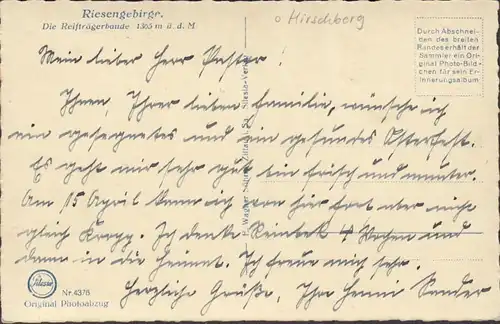 Riesengebirge.
Die Reifträgerbaude 1365 m ü. d. M
o Hirschberg
Durch Abschnei-
ten des breiten
Randes erhält der
Sammler ein Ori-
ginal Photo-Bild-
chen für sein Er-
innerungsalbum
Mein lieber Herr Pastor!
Ihnen, Ihrer lieben Familie, wünsche ich
ein gesegnetes und ein gesundes Osterfest.
Es geht mir sehr gut bin frisch und munter.
Am 15 April kann ich von hier fort aber nicht
gleich Ich denke Reinbek 4 Wochen und
dann in die Heimat. Ich freue mich sehr.
Herzliche Grüße, Ihre Henni Sander
Silesia
Nr. 4376
Original Photoabzug
Zittau i. Sa. Silesia-Verlag